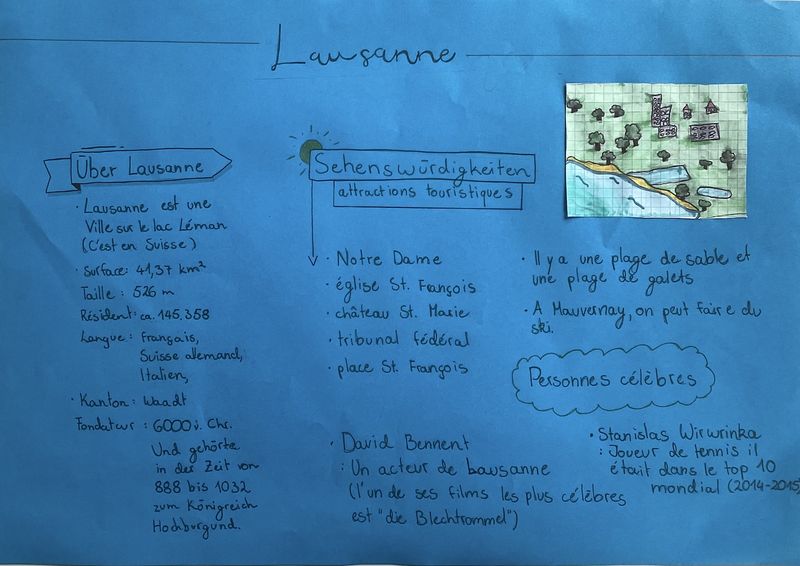 Lausanne
Über Lausanne
· Lausanne est une
Ville sur le lac Léman
(C'est en Suisse)
· Surface: 41,37 km²
Taille : 526 m
Résident: ca. 145.358
Langue : français,
Suisse allemand,
Italien,
· Kanton : Waadt
Fondateur : 6000 v. Chr.
Und gehörte
in der Zeit von
888 bis 1032
zum Königreich
Hochburgund.
Sehenswürdigkeiten
attractions touristiques
· Notre Dame
· église St. François
· château St. Marie
· tribunal fédéral
· place St. François
· Il y a une plage de sable et
une plage de galets
· A Mauvernay, on peut faire du
ski.
Personnes célèbres
· David Bennent
: Un acteur de Lausanne
(l'un de ses films les plus célèbres
est "die Blechtrommel")
· Stanislas Wirwrinka
: Joueur de tennis il
était dans le top 10
mondial (2014-2015)